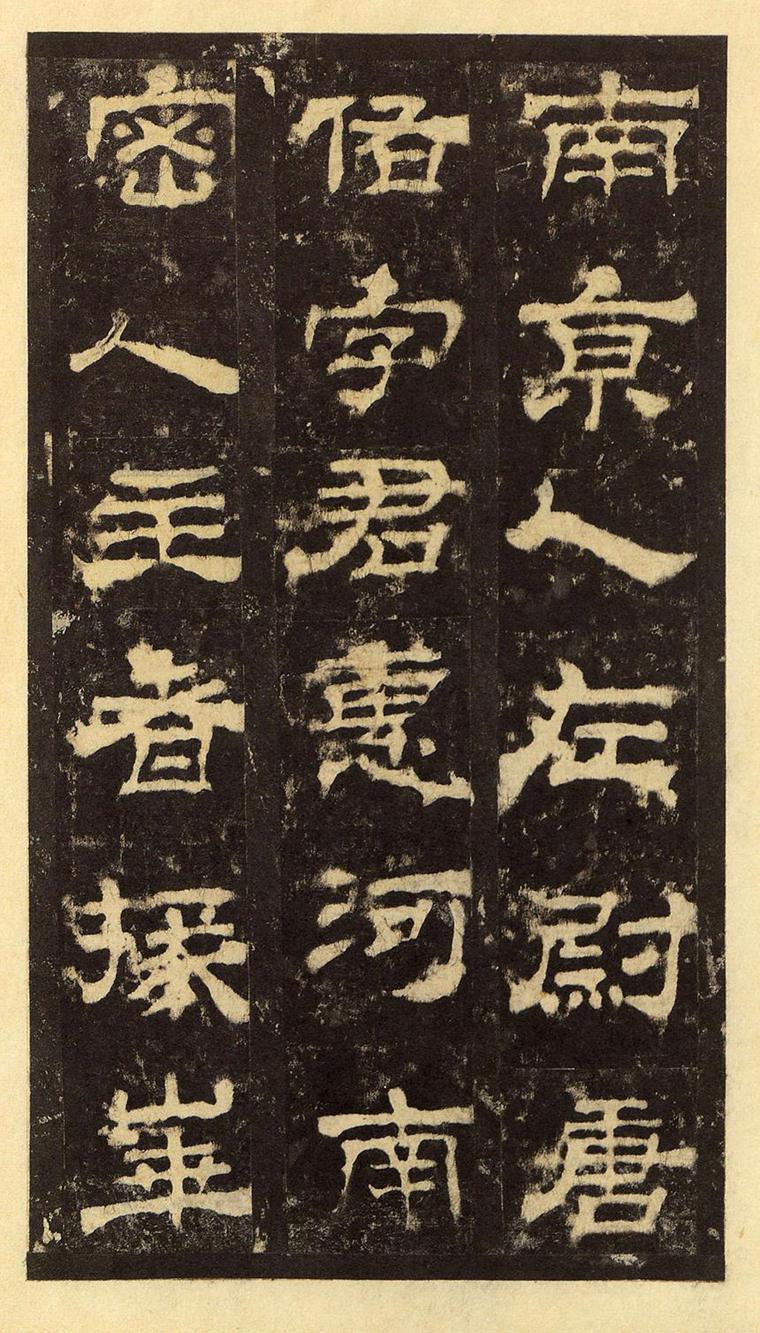 南京人左尉唐
佑字君惠河南
密人主者掾崋